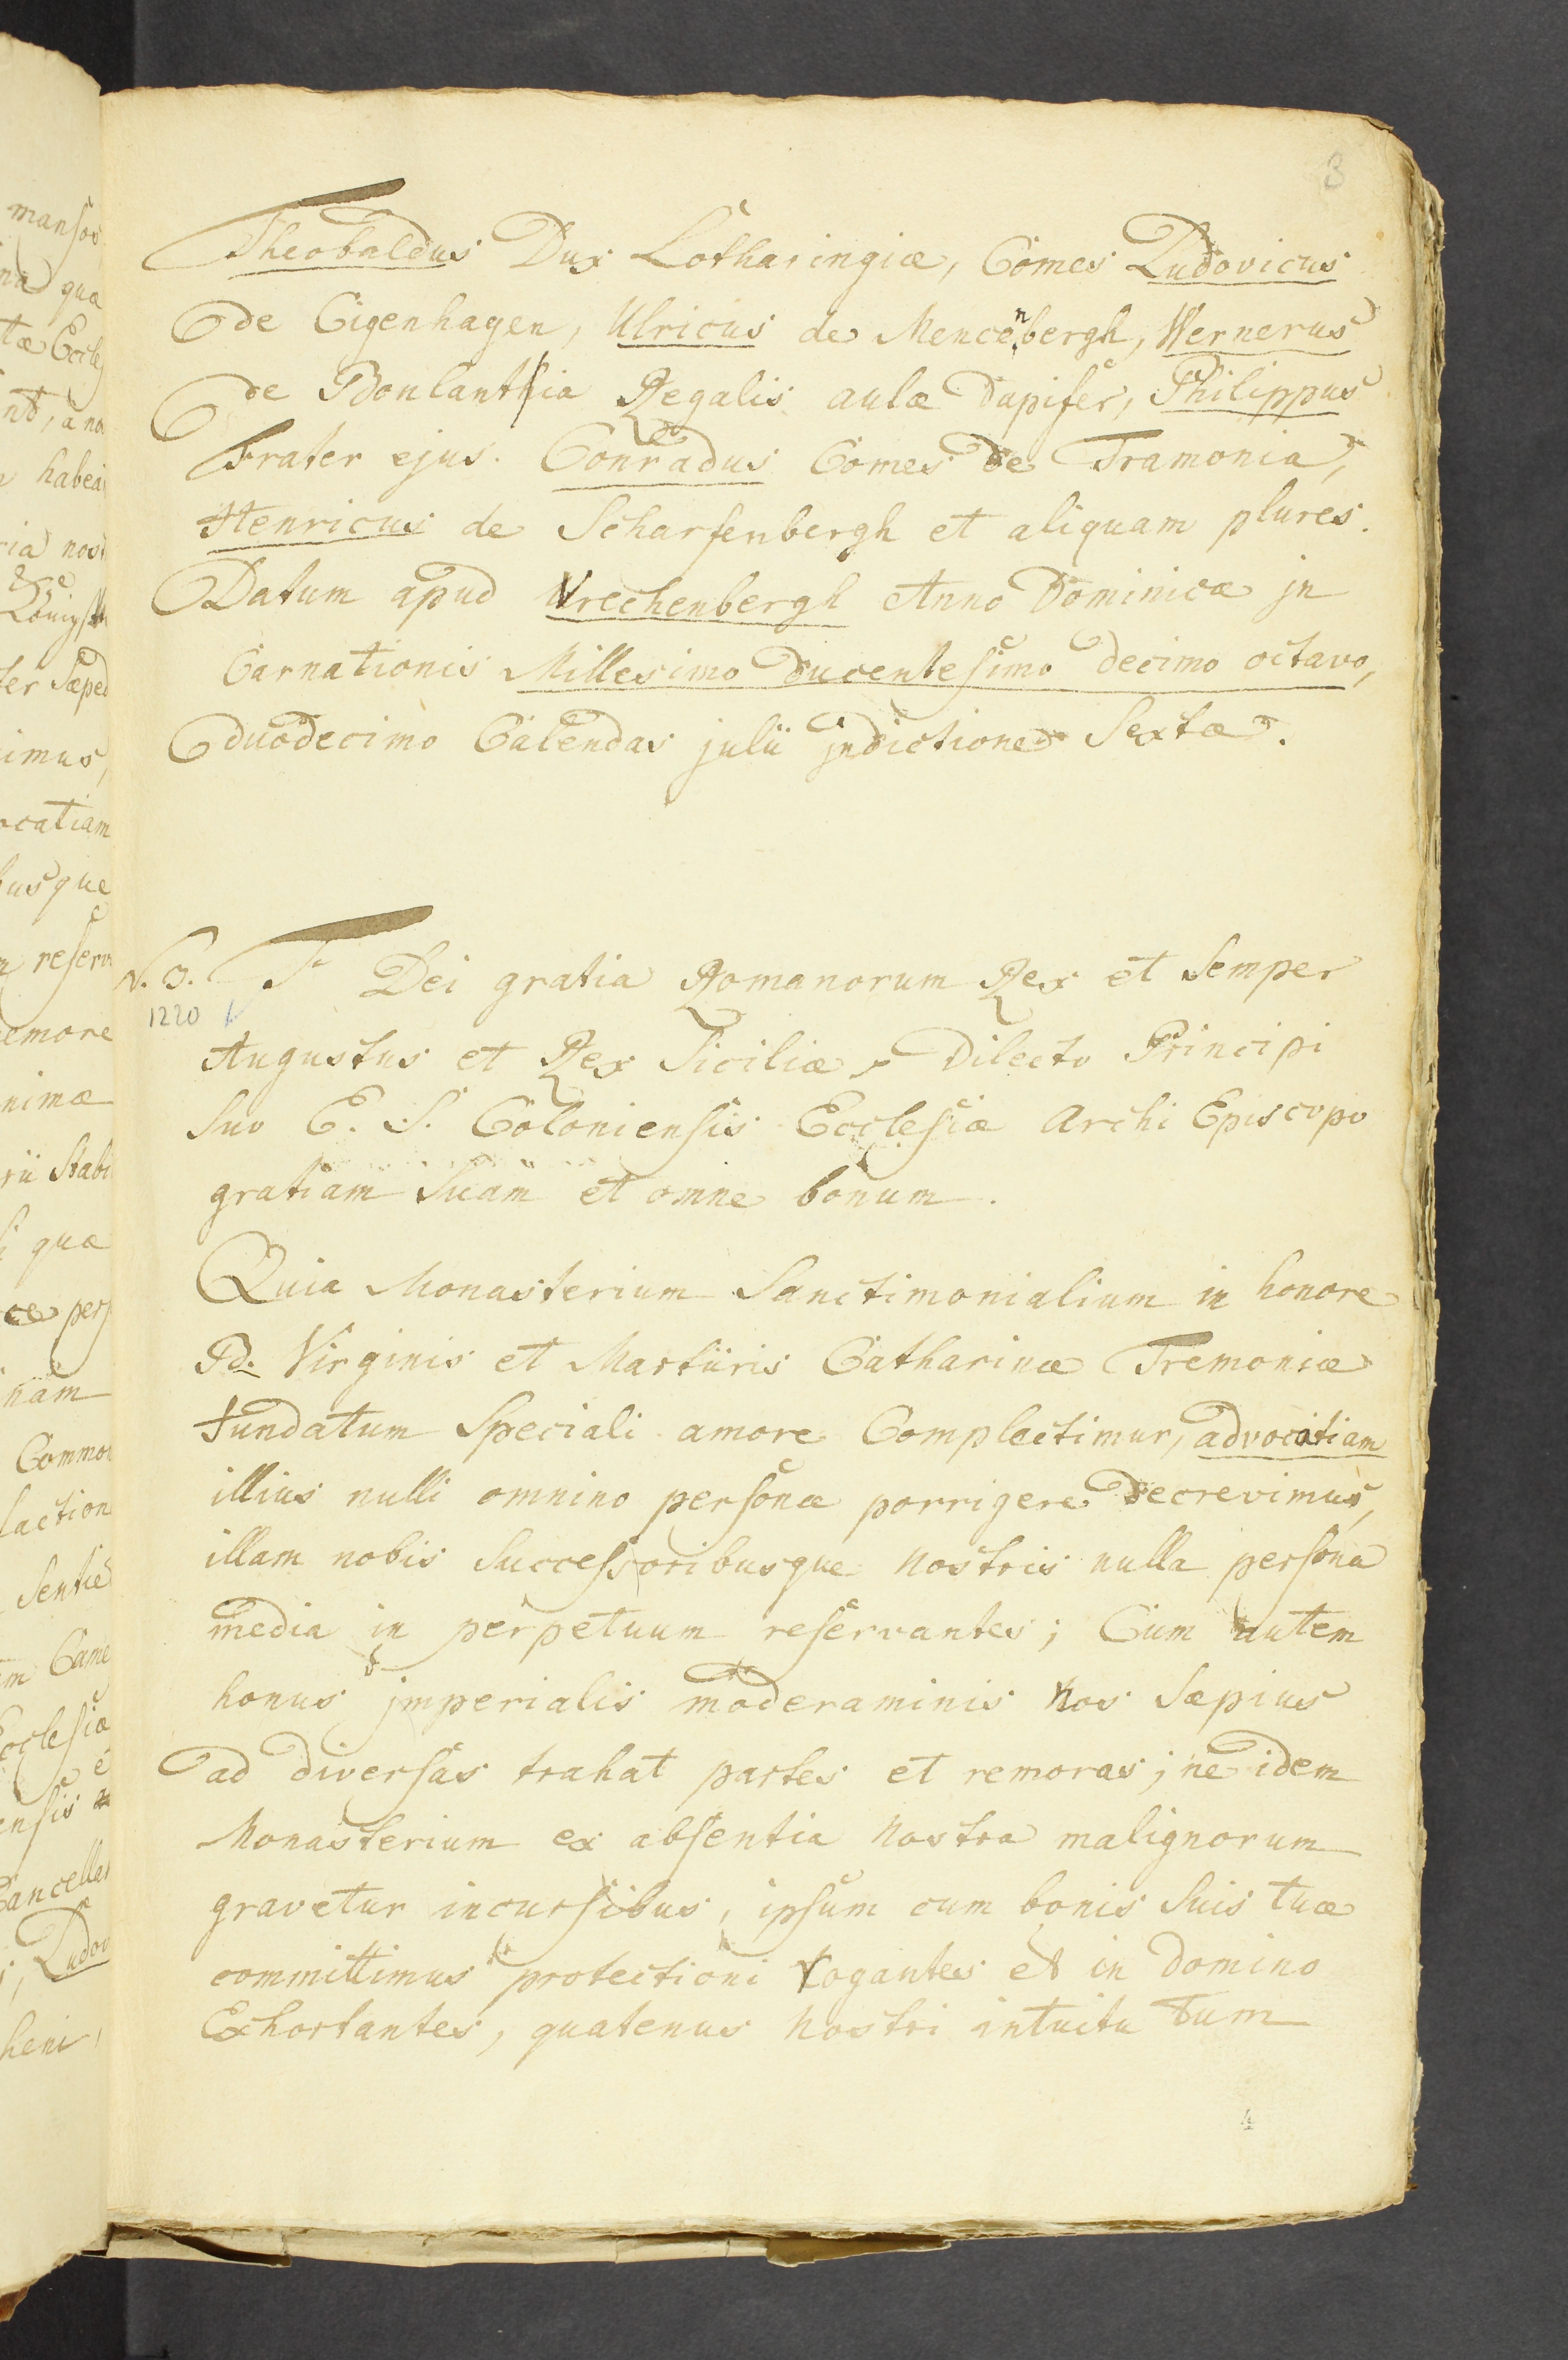 3
Theobaldus Dux Lotharingiæ, Comes Ludovicus
de Cigenhagen, Ulricus de Mencenbergh, Wernerus
de Bonlanthia Regalis aulæ dapifer, Philippus
frater ejus. Conradus Comes de Tramonia,
Henricus de Scharfenbergh et aliquam plures.
Datum apud Vrechenbergh Anno Dominicæ jn
Carnationis Millesimo ducentesimo decimo octavo,
duodecimo Calendas julii jndictione Sextæ.
N. 3. F Dei gratia Romanorum Rex et Semper
1220
Augustus et Rex Siciliæ, Dilecto Principi
Suo E. S. Coloniensis Ecclesiæ Archi Episcopo
gratiam Suam et omne bonum.
Quia Monasterium Sanctimonialium in honore
Bd. Virginis et Martÿris Catharinæ Tremoniæ
fundatum Speciali amore Complectimur, advocatiam
illius nulli omnino personæ porrigere decrevimus,
illam nobis Successoribusque nostris nulla persona
media in perpetuum reservantes; Cum autem
honus jmperialis moderaminis Nos Sæpius
ad diversas trahat partes et remoras; ne idem
Monasterium ex absentia Nostra malignorum
gravetur incursibus, ipsum cum bonis Suis tuæ
committimus protectioni rogantes et in Domino
Exhortantes, quatenus Nostri intuitu tum